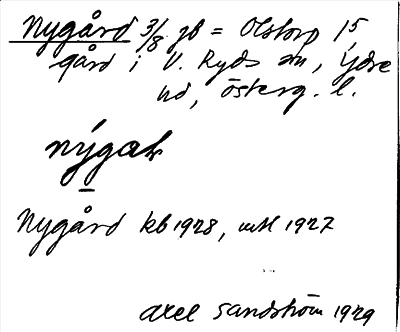 Nygård 3/8 jb = Olstorp 15
gård i V. Ryds sn, Ydre
hd, Österg. l.
nýgaḷ
Nygård kb 1928, mtl 1927
Axel Sandström 1929